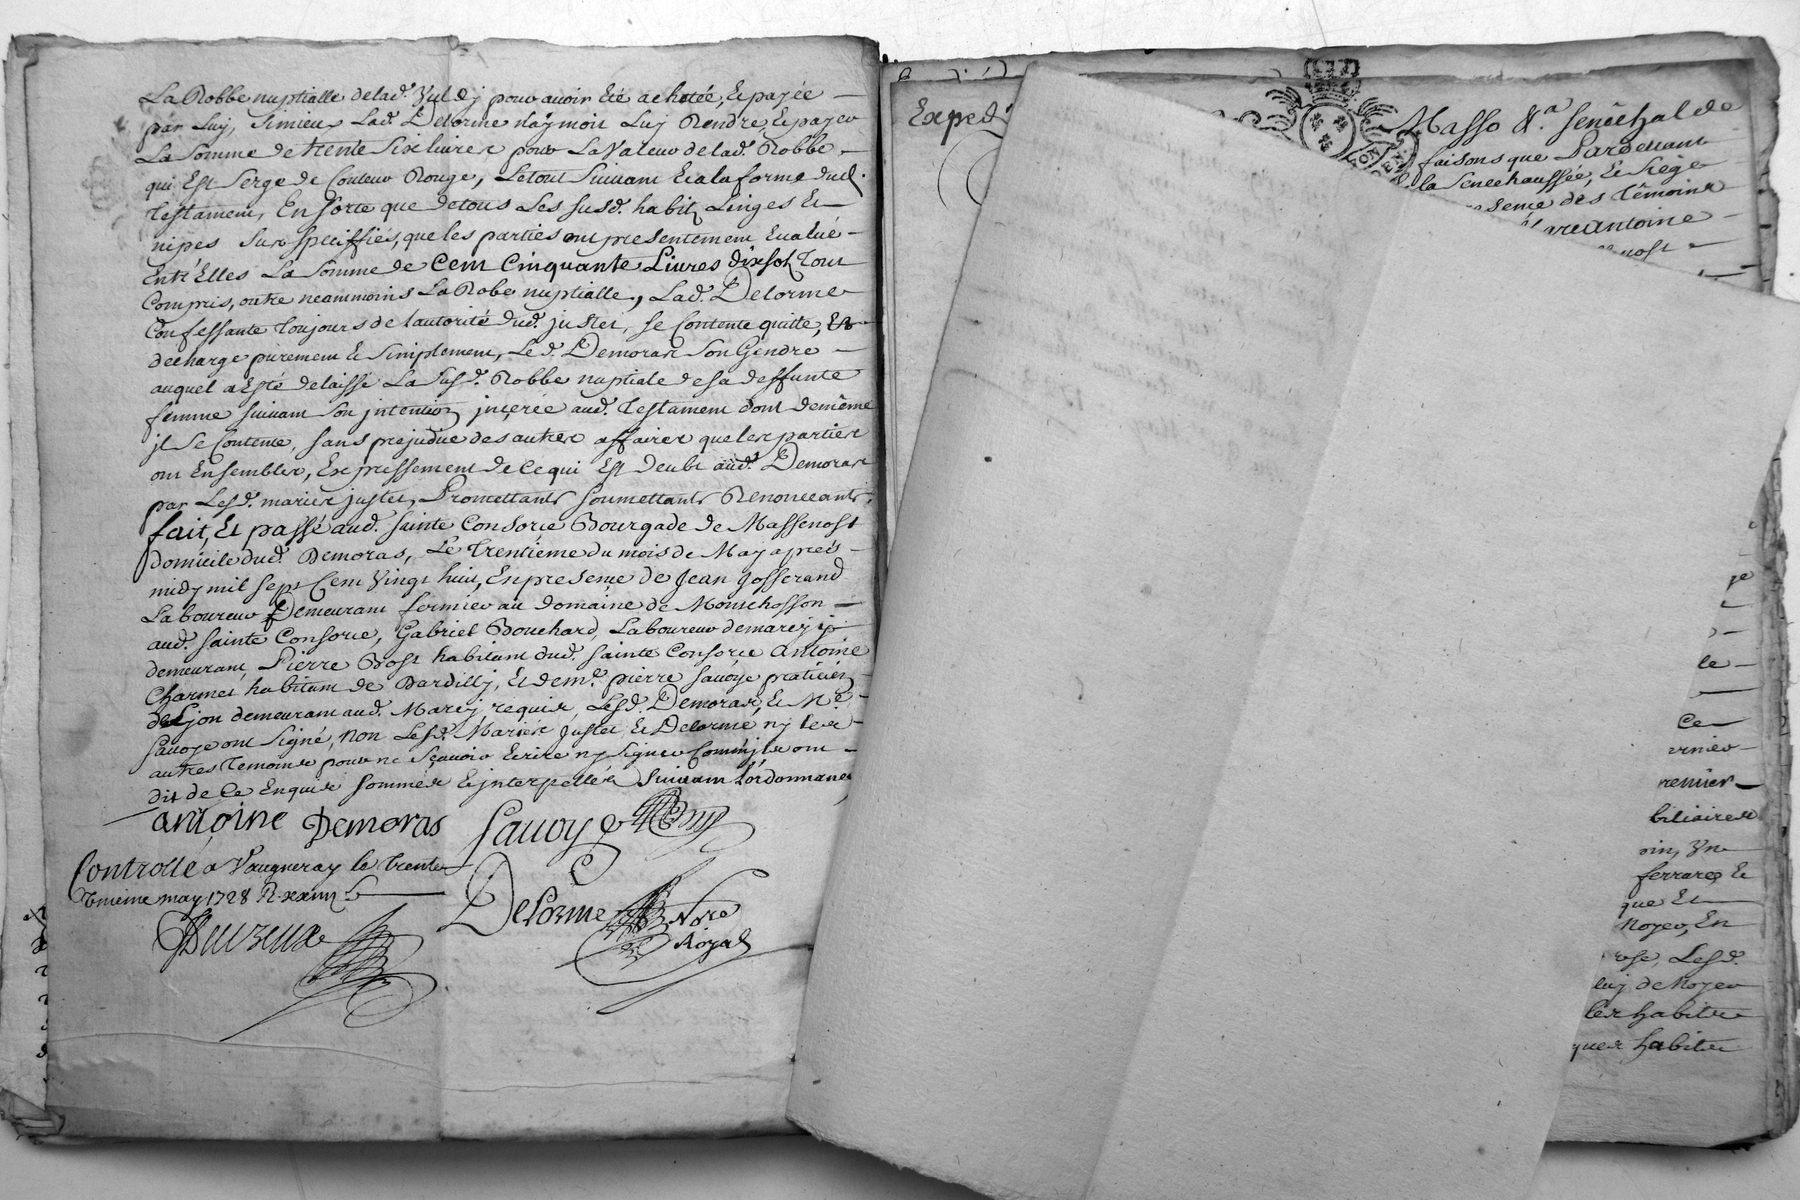 La Robbe nuptialle delad. Yuldy pour avoir Eté achetée, Et payée —
par Luy, Sy mieux Lad. Delorme n'aymoit Luy Rendre, Et payer
La Somme de trente Six livres pour La Valeur de lad. Robbe —
qui Est Serge de Couleur Rouge, Le tout Suivant Et a la forme dud.
Testament, En sorte que de tous Les susd. habits Linges Et —
nipes sus speciffiés, que les parties ont presentement Evalué —
Entr'Elles La Somme de Cent Cinquante Livres dix sols Tout
Compris, outre neammoins La Robe nuptialle, Lad. Delorme
Confessante Toujours de l'autorité dud. justet, se Contente quitte, Et
decharge purement Et Simplement, Le d. Demoras Son Gendre —
auquel a Esté delaissé La Susd. Robbe nuptiale de sa deffunte
femme suivant Son jntention jnçerée aud. Testament dont de mème
jl Se Contente, sans prejudice des autres affaires que les parties
ont Ensembles, Expressement de Ce qui Est deubt aud. Demoras
par Lesd. mariés justet, Promettants Soumettants Renonceants,
fait, Et passé aud. Sainte Consorçe Bourgade de Massenost
domicile dud. Demoras, Le Trentième du mois de May après —
midy mil sept Cent Vingt huit, En presençe de Jean Josserand
Laboureur Demeurant fermier au Domaine de Montchosson —
aud. Sainte Consorce, Gabriel Bouchard Laboureur demarcy y
demeurant, Pierre Bost habitant dud. Sainte Consorçe Antoine
Charmet habitant de Dardilly, Et de me. pierre Savoye praticien
de Lyon demeurant aud. Marcy requis, Lesd. Demoras, Et Me.
Savoye ont Signé, non Lesd. Mariés Justet, Et Delorme ny les
autres Temoins pour ne Sçavoir Ecrire ny Signer Comm'jls ont —
dit de Ce Enquis Sommés Et jnterpellés Suivant L'ordonnance
antoine Demoras Savoye
Controllé a Vaugneray le Trente
Unieme may 1728 R.
Delorme Nore
Royal
Exped
Masso &.a Senêchal de
faisons que Pardevant
la Senechaussée, Et Siège
des Têmoins
Antoine —
le —
Ce
remier —
biliaires
oin, Vn
ferrares Et
que Et
Noyer, En
Lesd.
luy de Noyer
les habits
habits